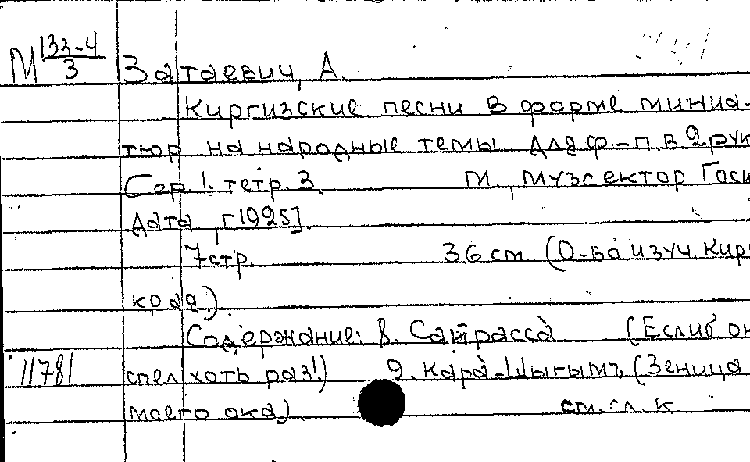 М 132-4/3 Затаевич, А.
Киргизские песни в форме миниа-
тюр на народные темы для ф-п. в 2 рук
Сер. 1. тетр. 3. М., Музсектор Госи
дата [1925].
7 стр. 36 см (О-ва изуч. Кирг
края.)
Содержание: 8. Сатрасса (Еслиб он
11781 спел хоть раз!) 9. Кара-Шыгымъ (Зеница
моего ока.) см. сл. к.